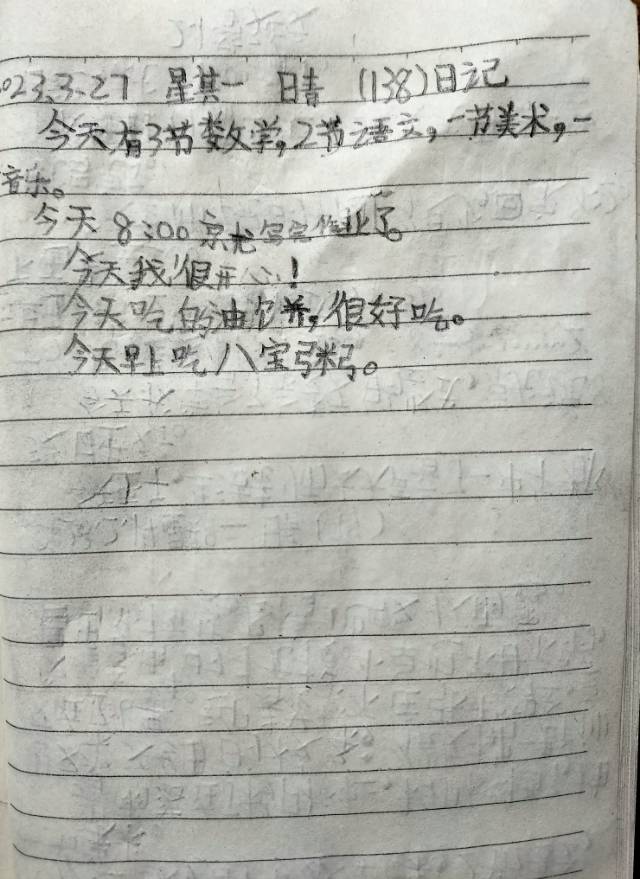 2023.3.27 星其一 日青 (138)日记
今天有3节数学,2节语文,一节美术,一
音乐。
今天8:00京尤写完作业了。
今天我很开心!
今天吃的油它养,很好吃。
今天早上吃八宝粥。